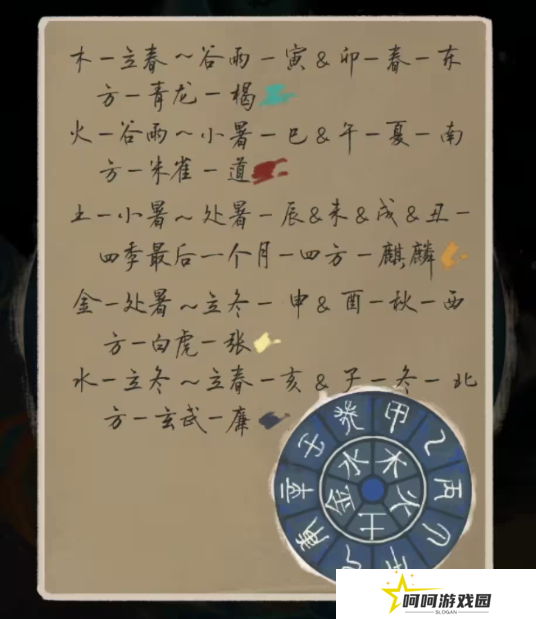 木一立春～谷雨一寅&卯一春一东
方一青龙一楬
火一谷雨～小暑一巳&午一夏一南
方一朱雀一道
土一小暑～处暑一辰&未&戌&丑一
四季最后一个月一四方一麒麟
金一处暑～立冬一申&酉一秋一西
方一白虎一张
水一立冬～立春一亥&子一冬一北
方一玄武一廉
甲乙丙
癸
水木火土金
呵呵游戏园
SLOGAN